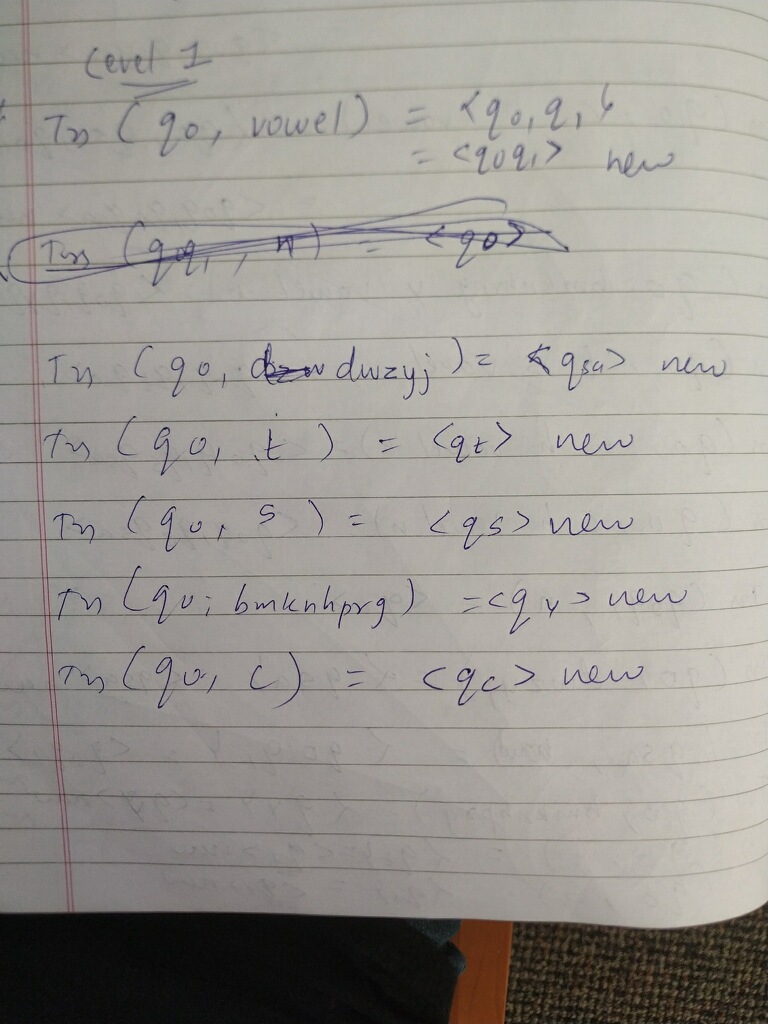 Level 1
Tn (q0, vowel) = <q0, q1 }
= <q0q1> new
Tn (q0q1, n) = <q0>
Tn (q0, dwzyj) = <qsa> new
Tn (q0, t) = <qt> new
Tn (q0, s) = <qs> new
Tn (q0, bmknhprg) = <qy> new
Tn (q0, c) = <qc> new